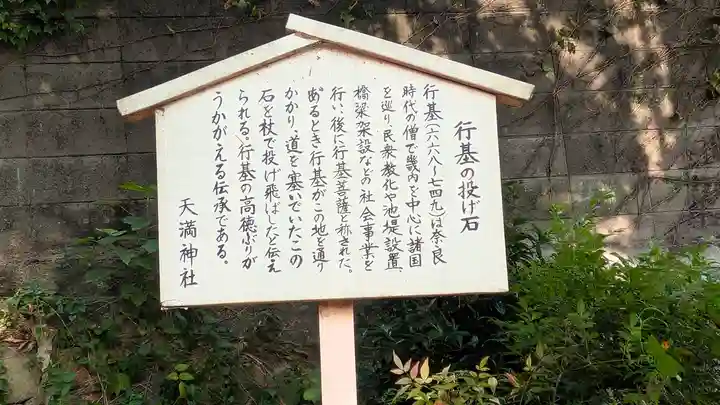 行基の投げ石
行基(六六八〜七四九)は奈良
時代の僧で畿内を中心に諸国
を巡り、民衆教化や池堤設置、
橋梁架設などの社会事業を
行い、後に行基菩薩と称された。
あるとき行基がこの地を通り
かかり、道を塞いでいたこの
石を杖で投げ飛ばしたと伝え
られる。行基の高徳ぶりが
うかがえる伝承である。
天満神社